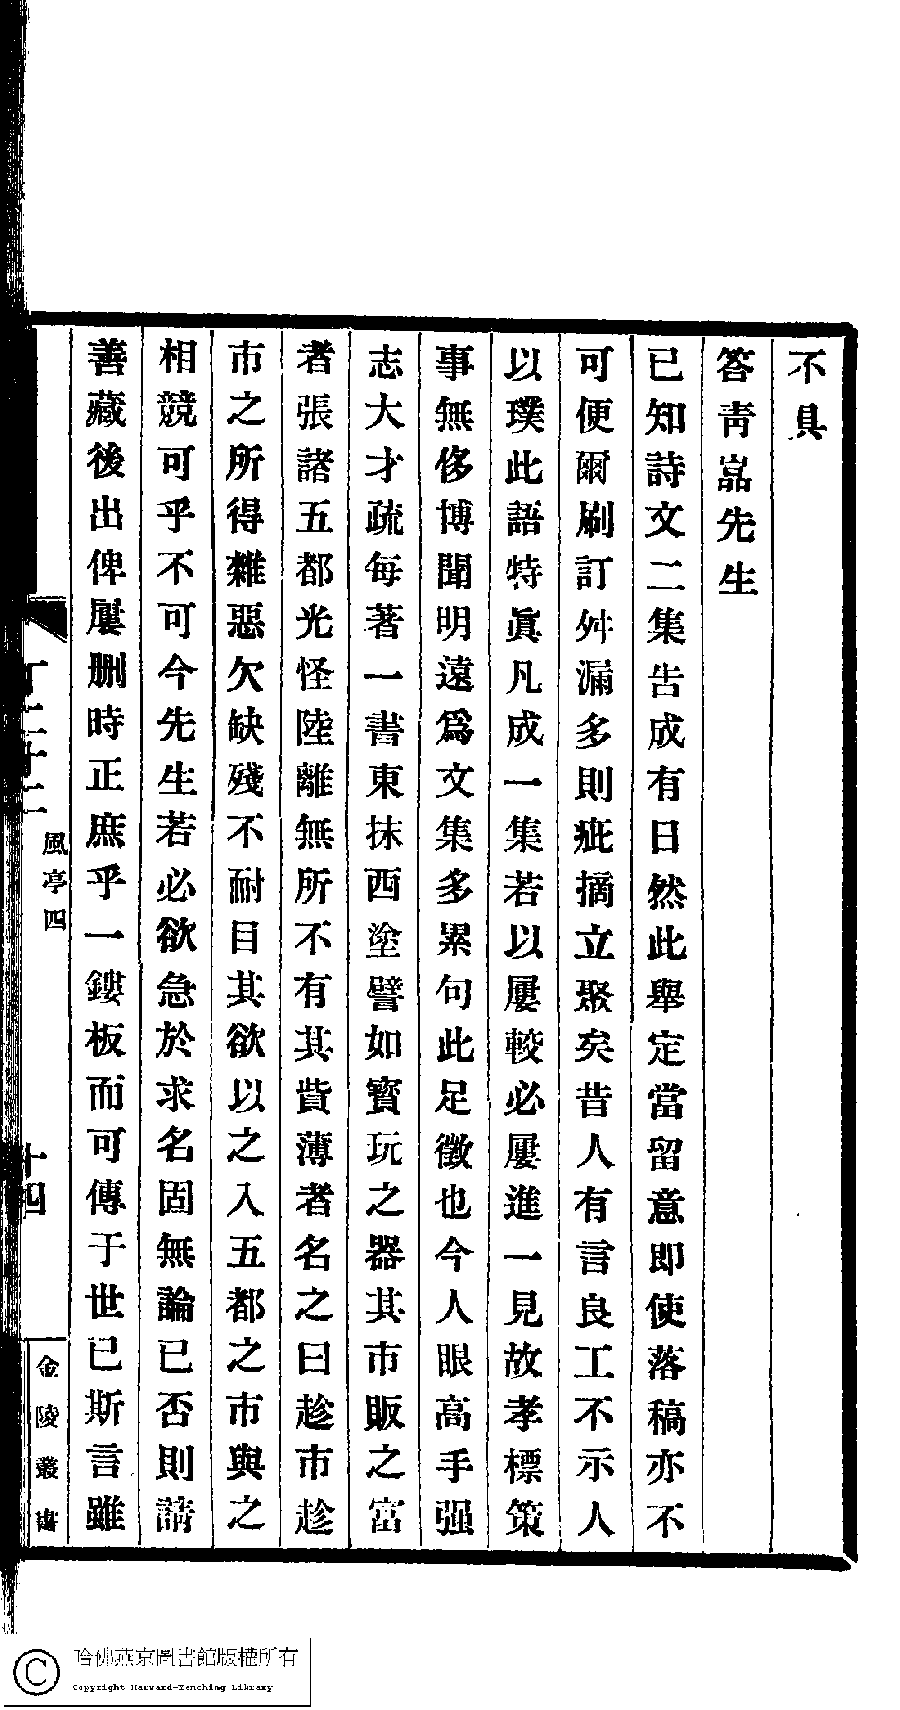 不具
答靑嵓先生
已知詩文二集告成有日然此舉定當留意即使落稿亦不
可便爾刷訂舛漏多則疵摘立聚矣昔人有言良工不示人
以璞此語特眞凡成一集若以屢較必屢進一見故孝標策
事無侈博聞明遠爲文集多累句此足徵也今人眼高手强
志大才疏每著一書東抹西塗譬如寳玩之器其市販之富
者張諸五都光怪陸離無所不有其貲薄者名之曰趁市趁
市之所得雜惡欠缺殘不耐目其欲以之入五都之市與之
相競可乎不可今先生若必欲急於求名固無論已否則請
善藏後出俾屢删時正庶乎一鏤板而可傳于世已斯言雖
風亭四
十四
金陵叢書
哈佛燕京圖書館版權所有
Copyright Harvard-Yenching Library